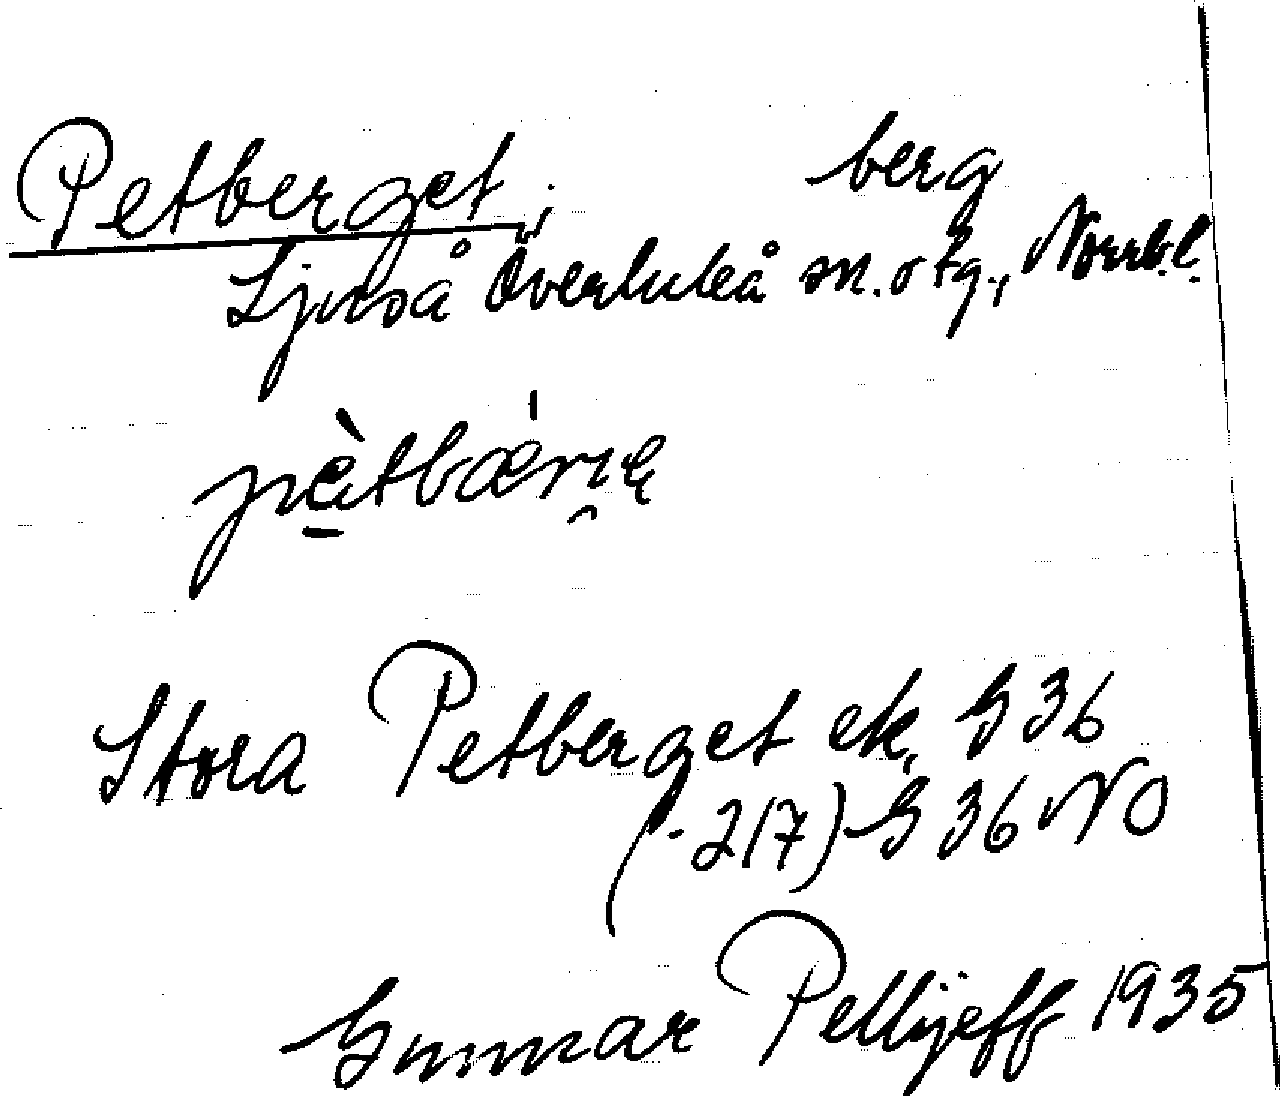 Petberget, berg
Ljuså Överluleå sn. o tg., Norrb.l.
pètbær̯ɩe̢
Stora Petberget ek. G 36
(-217) G 36 NO
Gunnar Pellijeff 1935